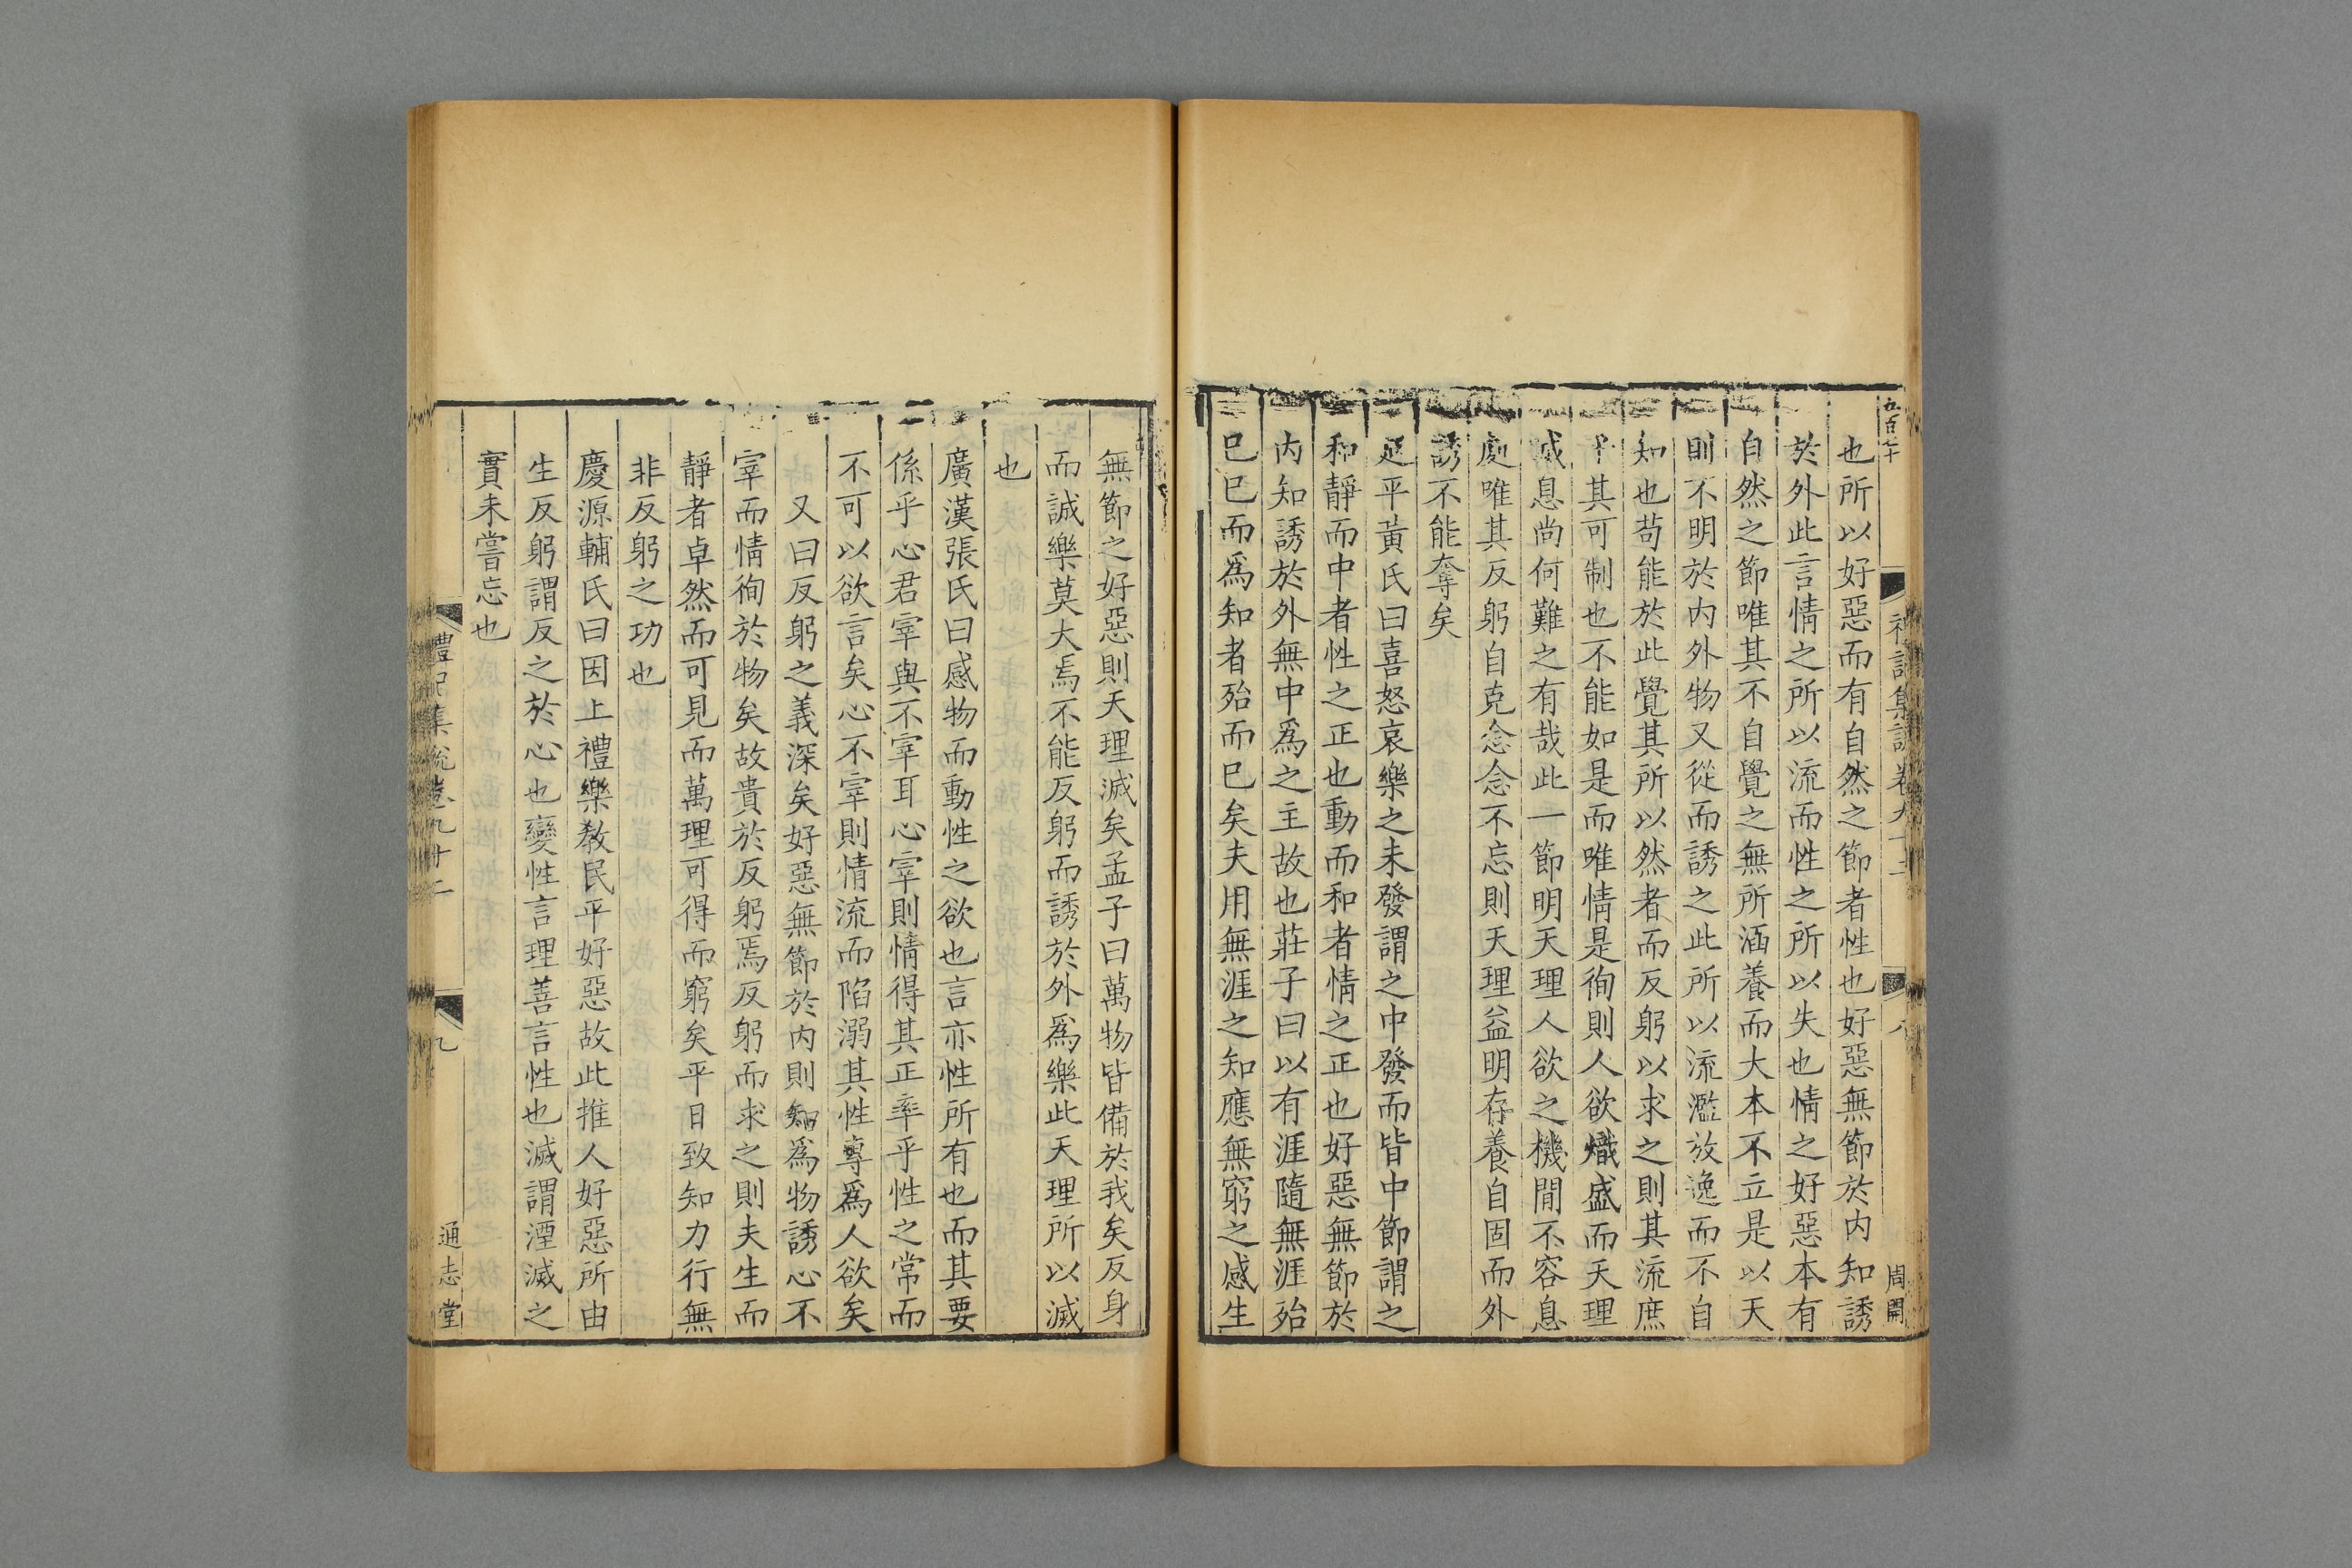 五百七十
禮記集說卷九十二
八
周開
也所以好惡而有自然之節者性也好惡無節於内知誘
於外此言情之所以流而性之所以失也情之好惡本有
自然之節唯其不自覺之無所涵養而大本不立是以天
則不明於内外物又從而誘之此所以流濫放逸而不自
知也苟能於此覺其所以然者而反躬以求之則其流庶
乎其可制也不能如是而唯情是徇則人欲熾盛而天理
滅息尚何難之有哉此一節明天理人欲之機間不容息
處唯其反躬自克念念不忘則天理益明存養自固而外
誘不能奪矣
延平黃氏曰喜怒哀樂之未發謂之中發而皆中節謂之
和靜而中者性之正也動而和者情之正也好惡無節於
内知誘於外無中爲之主故也莊子曰以有涯隨無涯殆
巳巳而爲知者殆而巳矣夫用無涯之知應無窮之感生
無節之好惡則天理滅矣孟子曰萬物皆備於我矣反身
而誠樂莫大焉不能反躬而誘於外爲樂此天理所以滅
也
廣漢張氏曰感物而動性之欲也言亦性所有也而其要
係乎心君宰與不宰耳心宰則情得其正率乎性之常而
不可以欲言矣心不宰則情流而陷溺其性專爲人欲矣
又曰反躬之義深矣好惡無節於内則知爲物誘心不
宰而情徇於物矣故貴於反躬焉反躬而求之則夫生而
靜者卓然而可見而萬理可得而窮矣平日致知力行無
非反躬之功也
慶源輔氏曰因上禮樂教民平好惡故此推人好惡所由
生反躬謂反之於心也變性言理善言性也滅謂湮滅之
實未嘗忘也
禮記集說卷九十二
九
通志堂